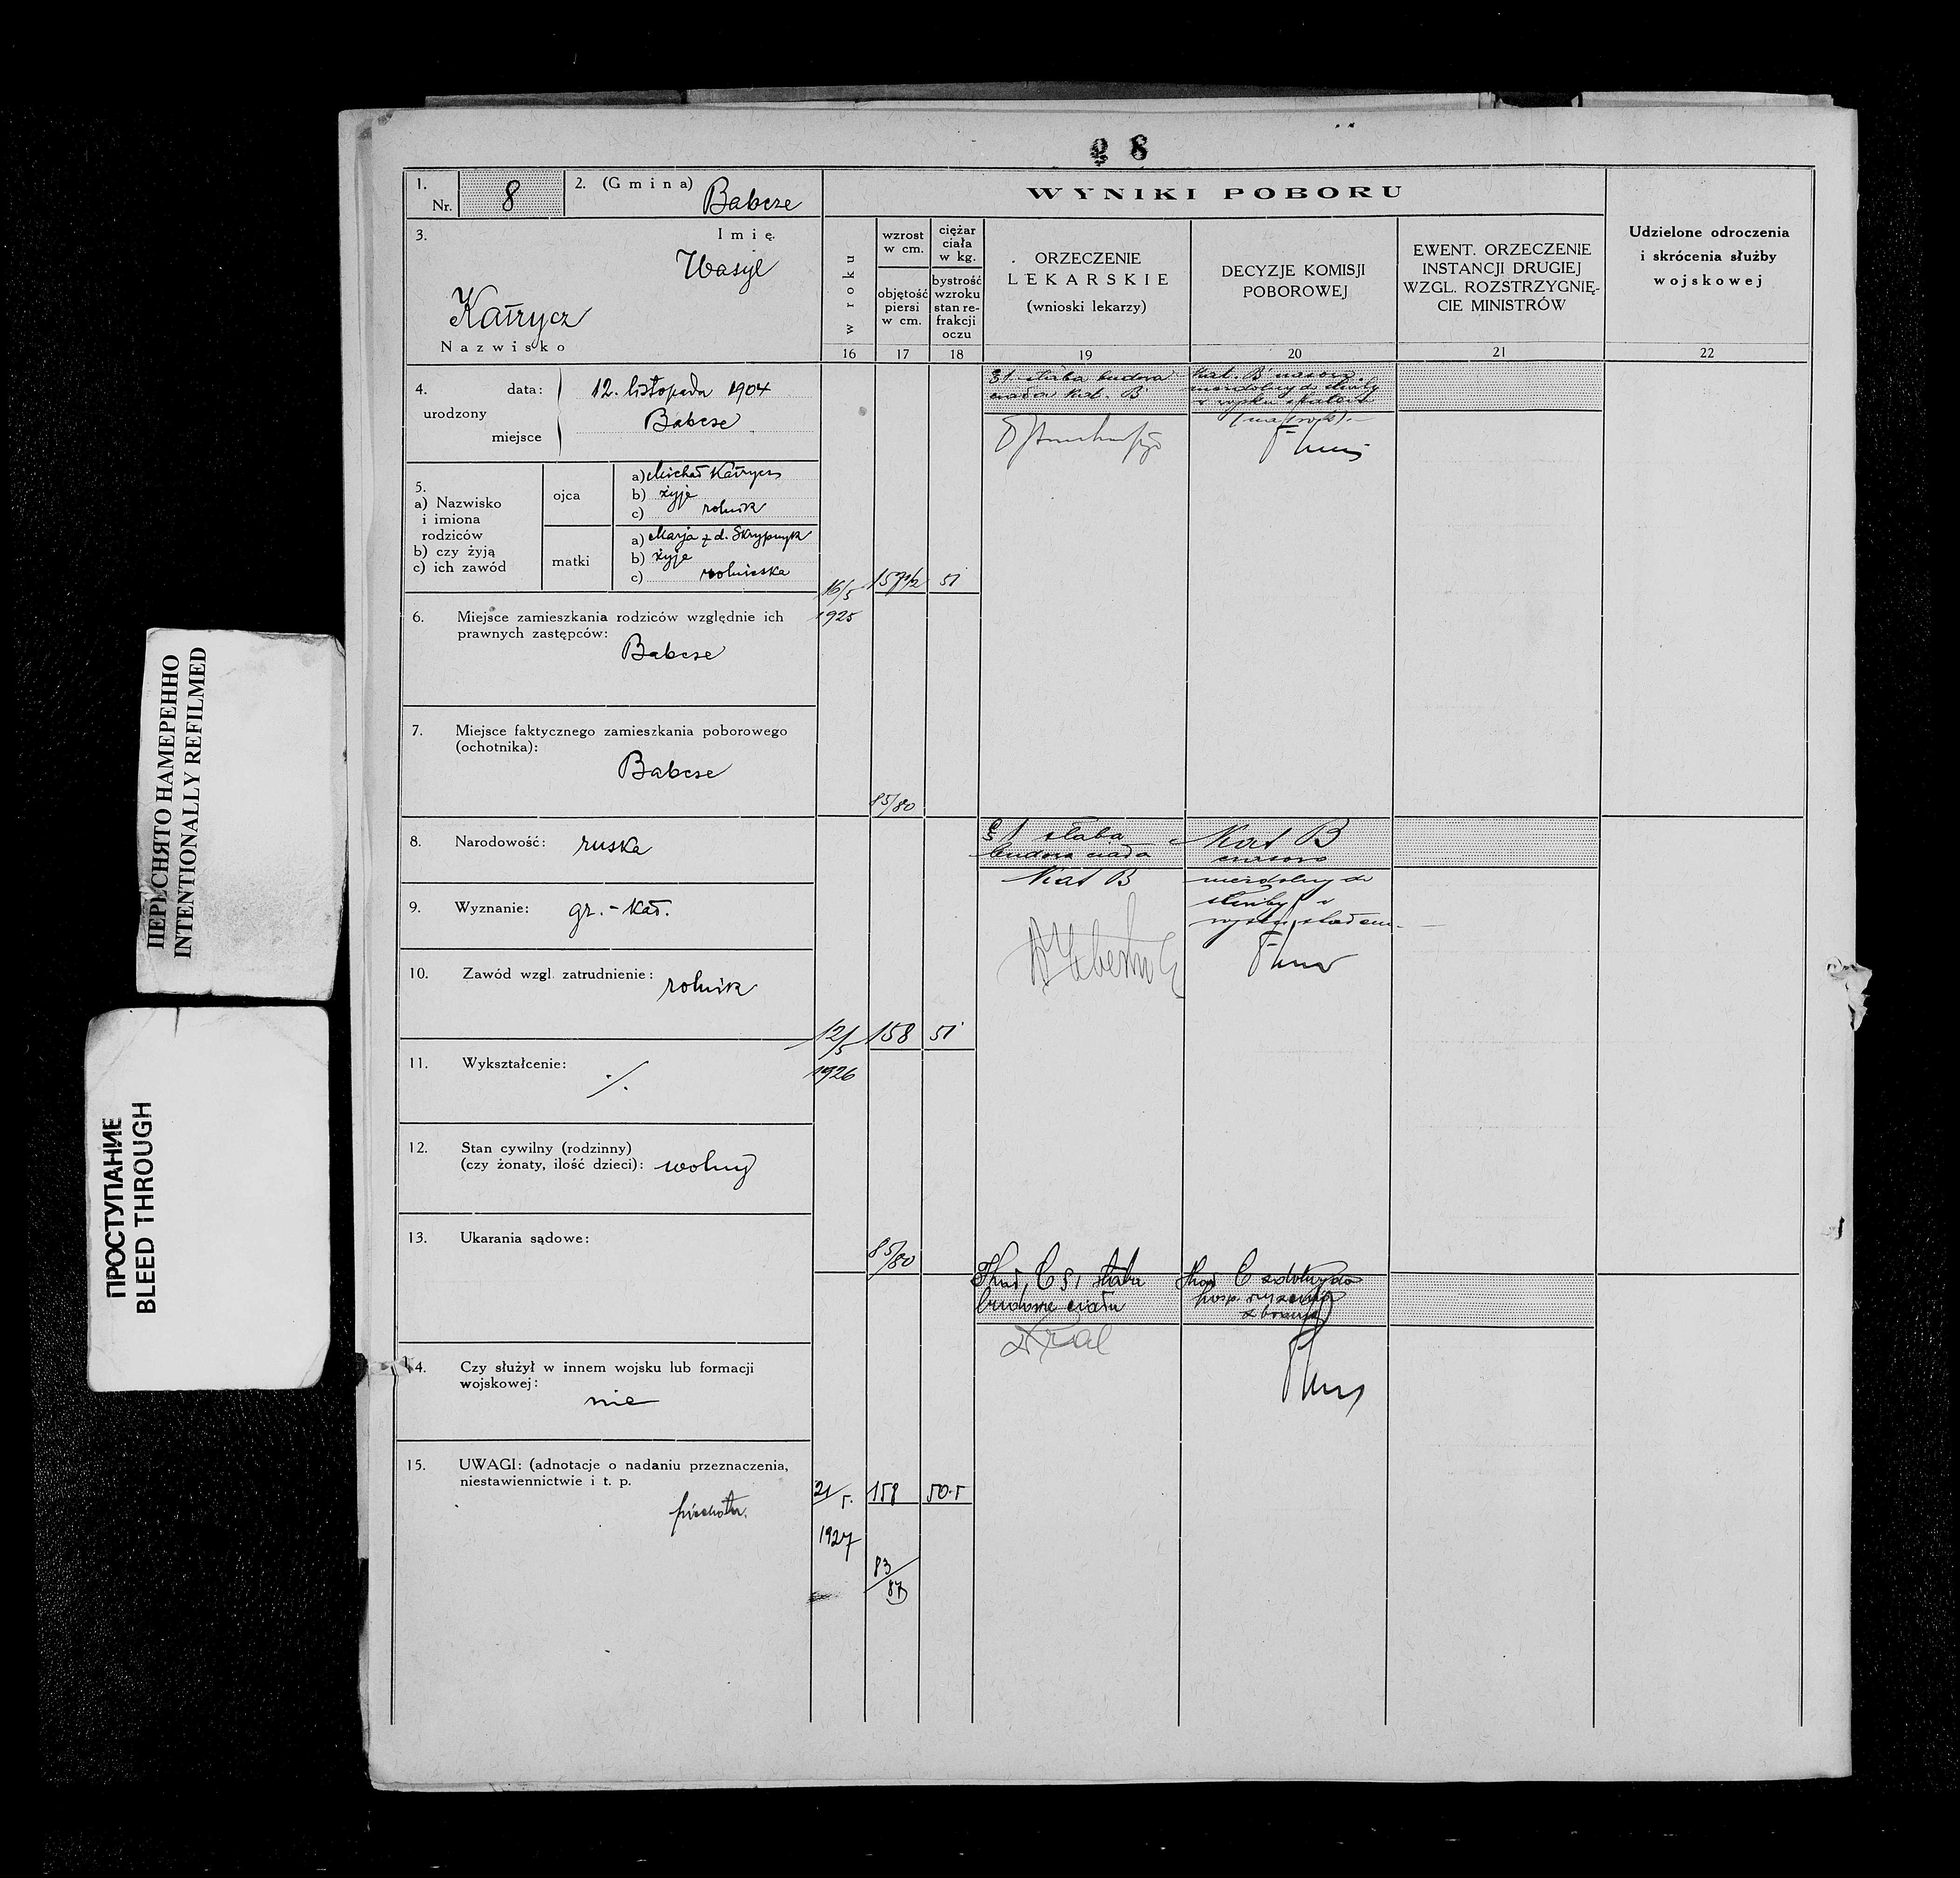 8
1.
Nr. 8
2. (Gmina) Babcze
WYNIKI POBORU
Udzielone odroczenia
i skrócenia służby
wojskowej
3.
Imię
Wasyl
Nazwisko
w roku
wzrost
w cm.
objętość
piersi
w cm.
ciężar
ciała
w kg.
bystrość
wzroku
stan re-
frakcji
oczu
ORZECZENIE
LEKARSKIE
(wnioski lekarzy)
DECYZJE KOMISJI
POBOROWEJ
EWENT. ORZECZENIE
INSTANCJI DRUGIEJ
WZGL. ROZSTRZYGNIĘ-
CIE MINISTRÓW
16
17
18
19
20
21
22
4.
urodzony
data: 12. listopada 1904
miejsce Babcze
5.
a) Nazwisko
i imiona
rodziców
b) czy żyją
c) ich zawód
ojca
a) Michał
b) żyje
c) rolnik
matki
a) Marja z d. Skrypnyk
b) żyje
c) rolniczka
6. Miejsce zamieszkania rodziców względnie ich
prawnych zastępców:
Babcze
7. Miejsce faktycznego zamieszkania poborowego
(ochotnika):
Babcze
8. Narodowość: ruska
9. Wyznanie: gr.-kat.
10. Zawód wzgl. zatrudnienie: rolnik
11. Wykształcenie: ./.
12. Stan cywilny (rodzinny)
(czy żonaty, ilość dzieci): wolny
13. Ukarania sądowe:
14. Czy służył w innem wojsku lub formacji
wojskowej:
nie
15. UWAGI: (adnotacje o nadaniu przeznaczenia,
niestawiennictwie i t. p.
piechota.
16/5
1925
157 1/2
51
85/80
§1. słaba budowa
ciała kat. B
Kat. B
(na rok).
12/5
1926
158
51
85/80
§ 1 słaba
budowa ciała
Kat B
Kat B
niezdolny do
służby w
21/5.
1927
158
50.5
83/87
C § 1 słaba
budowa ciała
C zdolny do
z bronią
ПЕРЕСНЯТО НАМЕРЕННО
INTENTIONALLY REFILMED
ПРОСТУПАНИЕ
BLEED THROUGH